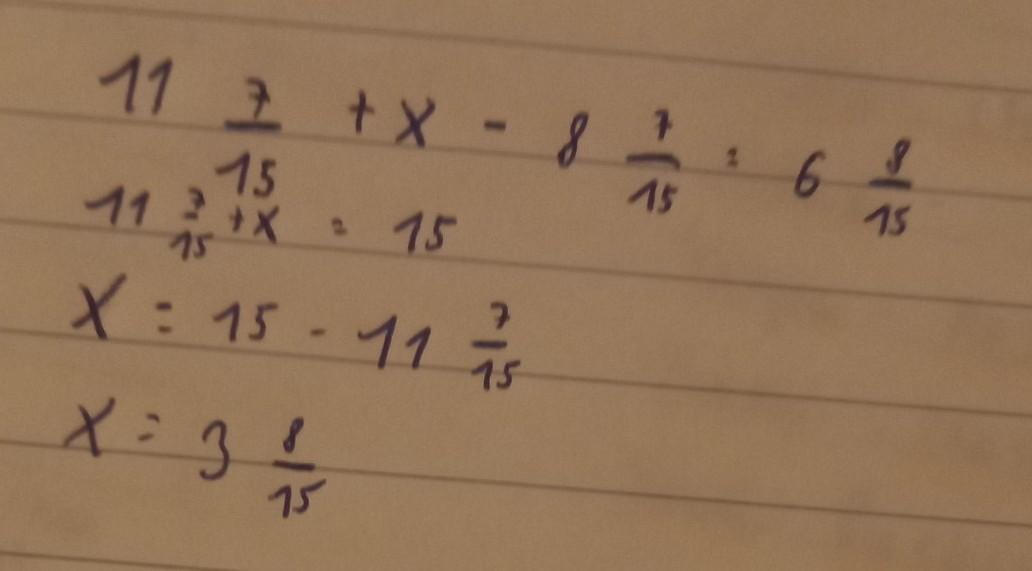 11 7/15 + x - 8 7/15 = 6 8/15
11 7/15 + x = 15
x = 15 - 11 7/15
x = 3 8/15